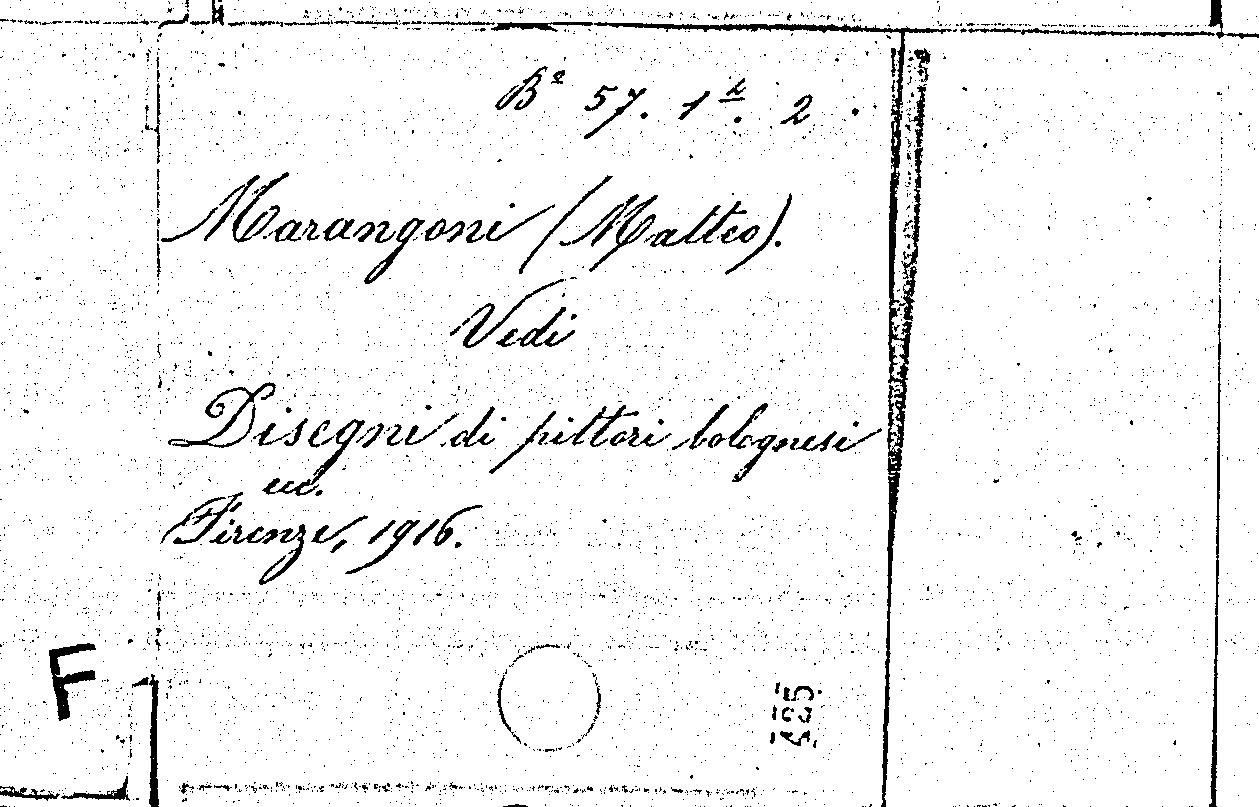 Bº 57. 1ª. 2.
Marangoni (Matteo).
Vedi
Disegni di pittori bolognesi
ecc.
Firenze, 1916.
F